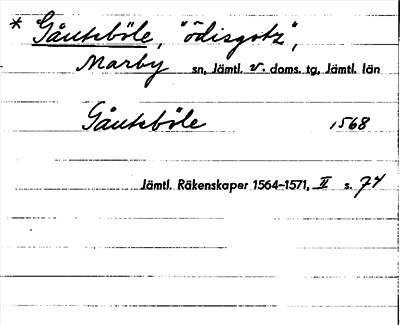 * Gåutsböle, "ödisgotz",
Marby sn, Jämtl. v. doms. tg, Jämtl. län
Gåutsböle 1568
Jämtl. Räkenskaper 1564–1571, II s. 74